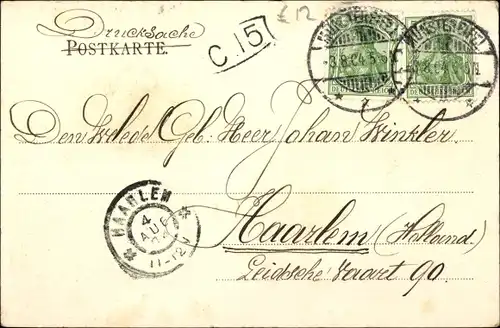 Drucksache
POSTKARTE.
C. 15
£12
MÜNSTEREIFEL
3.8.04.5
DEUTSCHES REICH
MÜNSTEREIFEL
Den WelEd. Geb. Heer Johan Winkler
Haarlem (Holland.
Leidsche Vaart 90.
HAARLEM
4
AUG